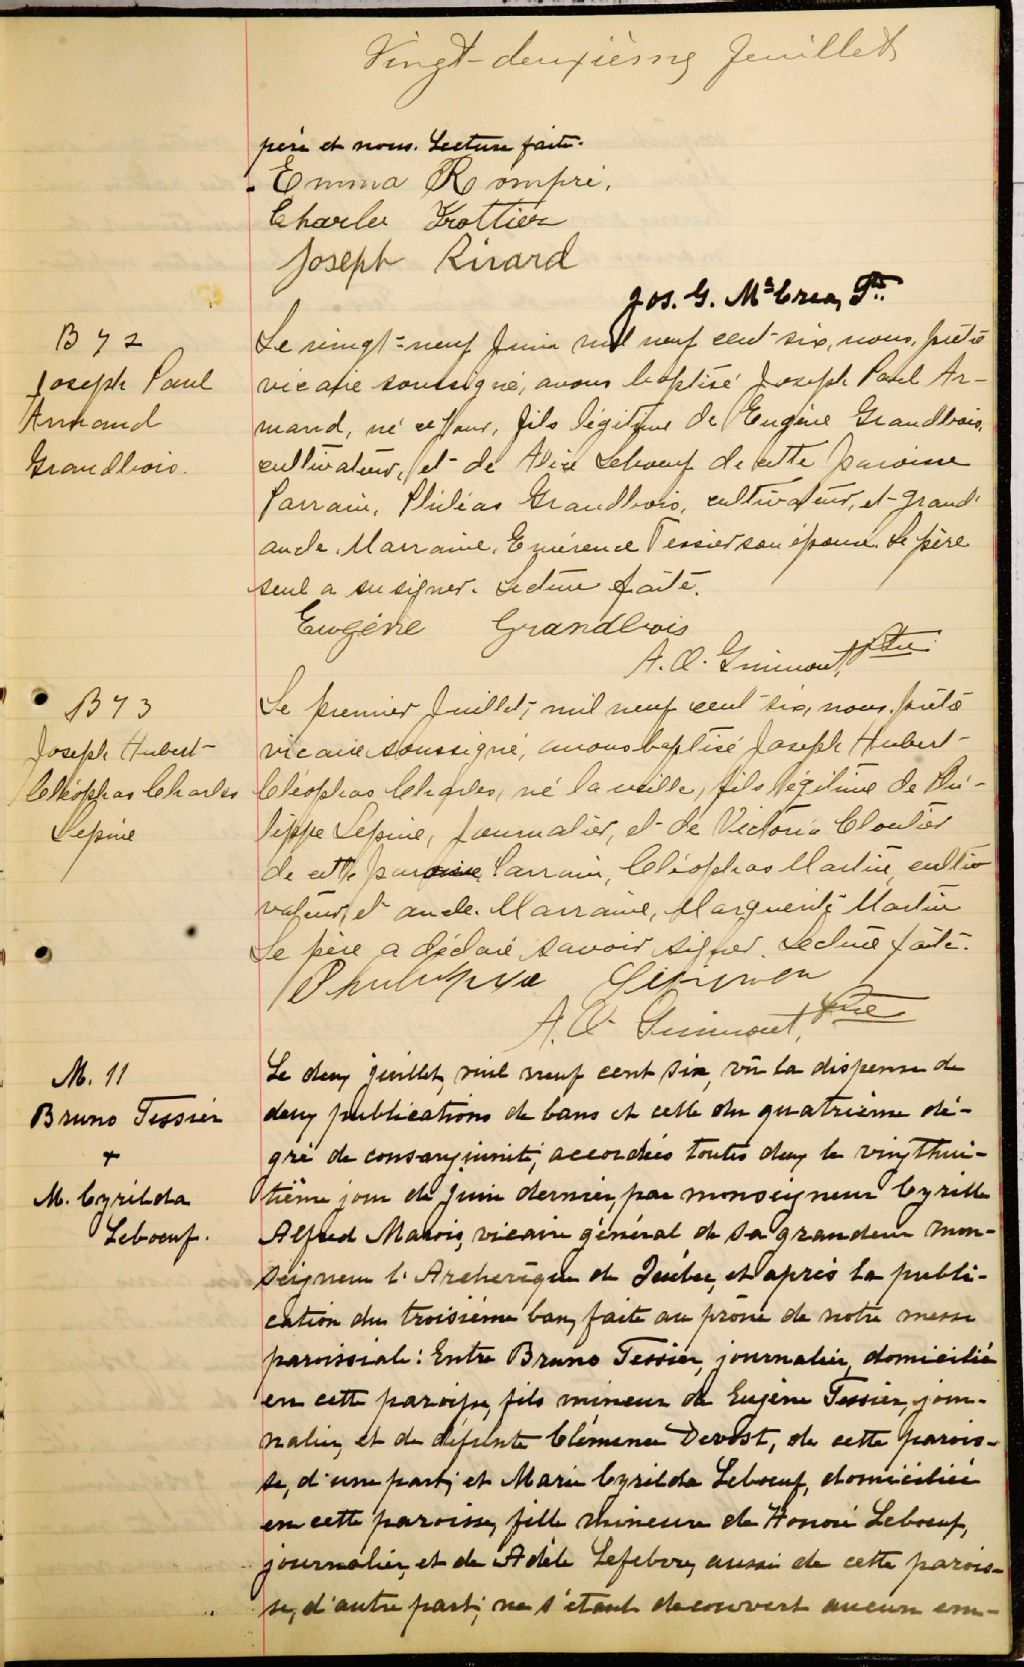 Vingt-deuxième feuillet
père et nous. Lecture faite.
Emma Rompré.
Charles Trottier
Joseph Rivard
Jos. G. McCrea, Ptre.
B 72
Joseph Paul
Armand
Grandbois.
Le vingt-neuf Juin mil neuf cent-six, nous, prêtre
vicaire soussigné, avons baptisé Joseph Paul Ar-
mand, né ce jour, fils légitime de Eugène Grandbois,
cultivateur, et de Alice Leboeuf de cette paroisse
Parrain, Philéas Grandbois, cultivateur, et grand
oncle. Marraine, Emérence Tessier son épouse. Le père
seul a su signer. Lecture faite.
Eugène Grandbois
A. O. Guimont, Ptre
B 73
Joseph Hubert
Cléophas Charles
Lepine
Le premier Juillet, mil neuf cent six, nous, prêtre
vicaire soussigné, avons baptisé Joseph Hubert
Cléophas Charles, né la veille, fils légitime de Phi-
lippe Lepine, journalier, et de Victoria Cloutier
de cette paroisse. Parrain, Cléophas Martin, culti
vateur, et oncle. Marraine, Marguerite Martin
Le père a déclaré savoir signer. Lecture faite.
A. O. Guimont, Ptre
M. 11
Bruno Tessier
+
M. Cyrilda
Leboeuf.
Le deux juillet, mil neuf cent six, vû la dispense de
deux publications de bans et celle du quatrième dé-
gré de consanguinité, accordées toutes deux le vingthui-
tième jour de Juin dernier, par monseigneur Cyrille
Alfred Marois, vicaire général de sa grandeur mon-
seigneur l'Archevêque de Québec, et après la publi-
cation du troisième ban, faite au prône de notre messe
paroissiale: Entre Bruno Tessier, journalier, domicilié
en cette paroisse, fils mineur de Eugène Tessier, jour-
nalier, et de défunte Clémence Devost, de cette parois-
se, d'une part; et Marie Cyrilda Leboeuf, domiciliée
en cette paroisse, fille mineure de Honoré Leboeuf,
journalier, et de Adèle Lefebvre, aussi de cette parois-
se, d'autre part; ne s'étant découvert aucun em-